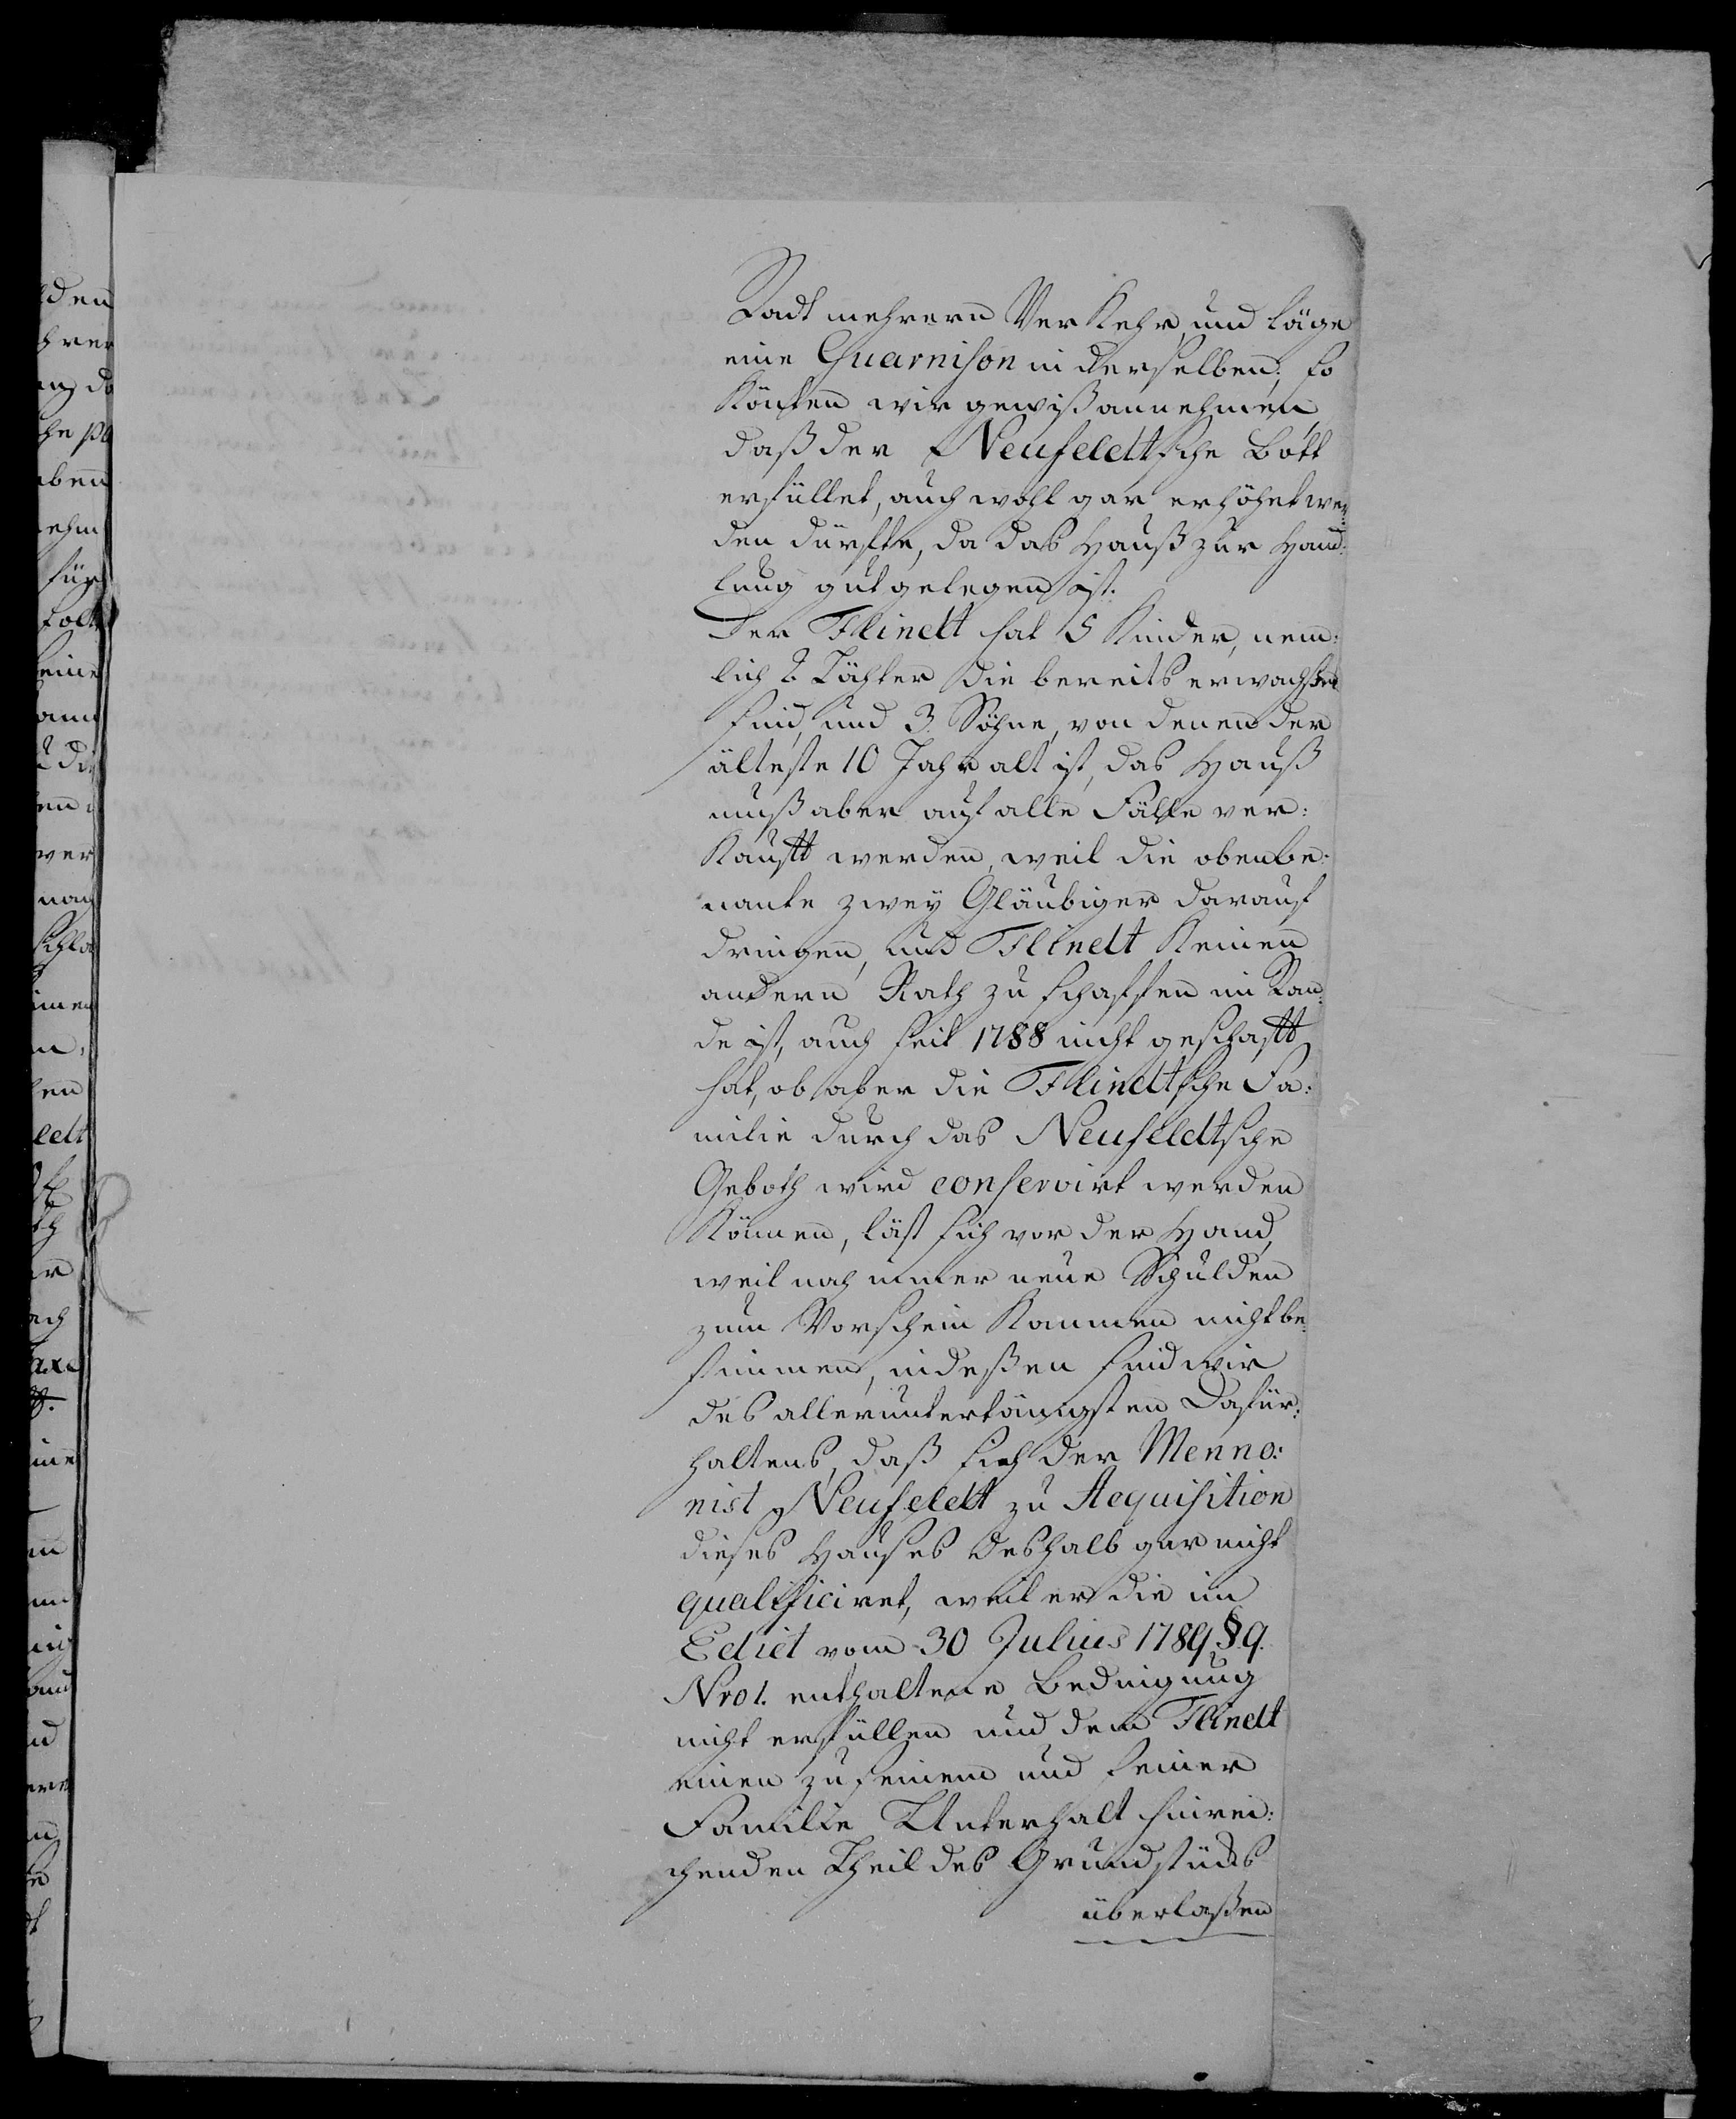 Stadt mehrern Verkehr, und läge
eine Guarnison in derselben; so
Könten wir gewiß annehmen,
daß der Neufeldtsche Bott
erfüllet, auch wohl gar erhöhet wer:
den dürffte, da das Hauß zur Hand:
lung gut gelegen ist.
Der Flindt hat 5 Kinder, nem:
lich 2. Töchter die bereits erwachsen
sind, und 3. Söhne, von denen der
älteste 10 Jahr alt ist, das Hauß
muß aber auf alle Fälle ver:
Kaufft werden, weil die obenbe:
nante zwey Gläubiger darauf
dringen, und Flindt Keinen
andern Rath zu schaffen im Stan:
de ist, auch seit 1788 nicht geschafft
hat, ob aber die Flindtsche Fa:
milie durch das Neufeldtsche
Geboth wird conservirt werden
Können, läst sich vor der Hand,
weil noch immer neue Schulden
zum Vorschein Kommen nicht be:
stimmen, indeßen sind wir
des alleruntertänigsten Dafür:
haltens, daß sich der Menno:
nist Neufeldt zu Acquisition
dieses Hauses deshalb gar nicht
qualificiret, weil er die im
Edict vom 30 Julius 1789 §. 9.
Nro 1. enthaltene Bedingung
nicht erfüllen und dem Flindt
einen zu seinem und seiner
Familie Unterhalt hinrei:
chenden Theil des Grundstücks
überlaßen